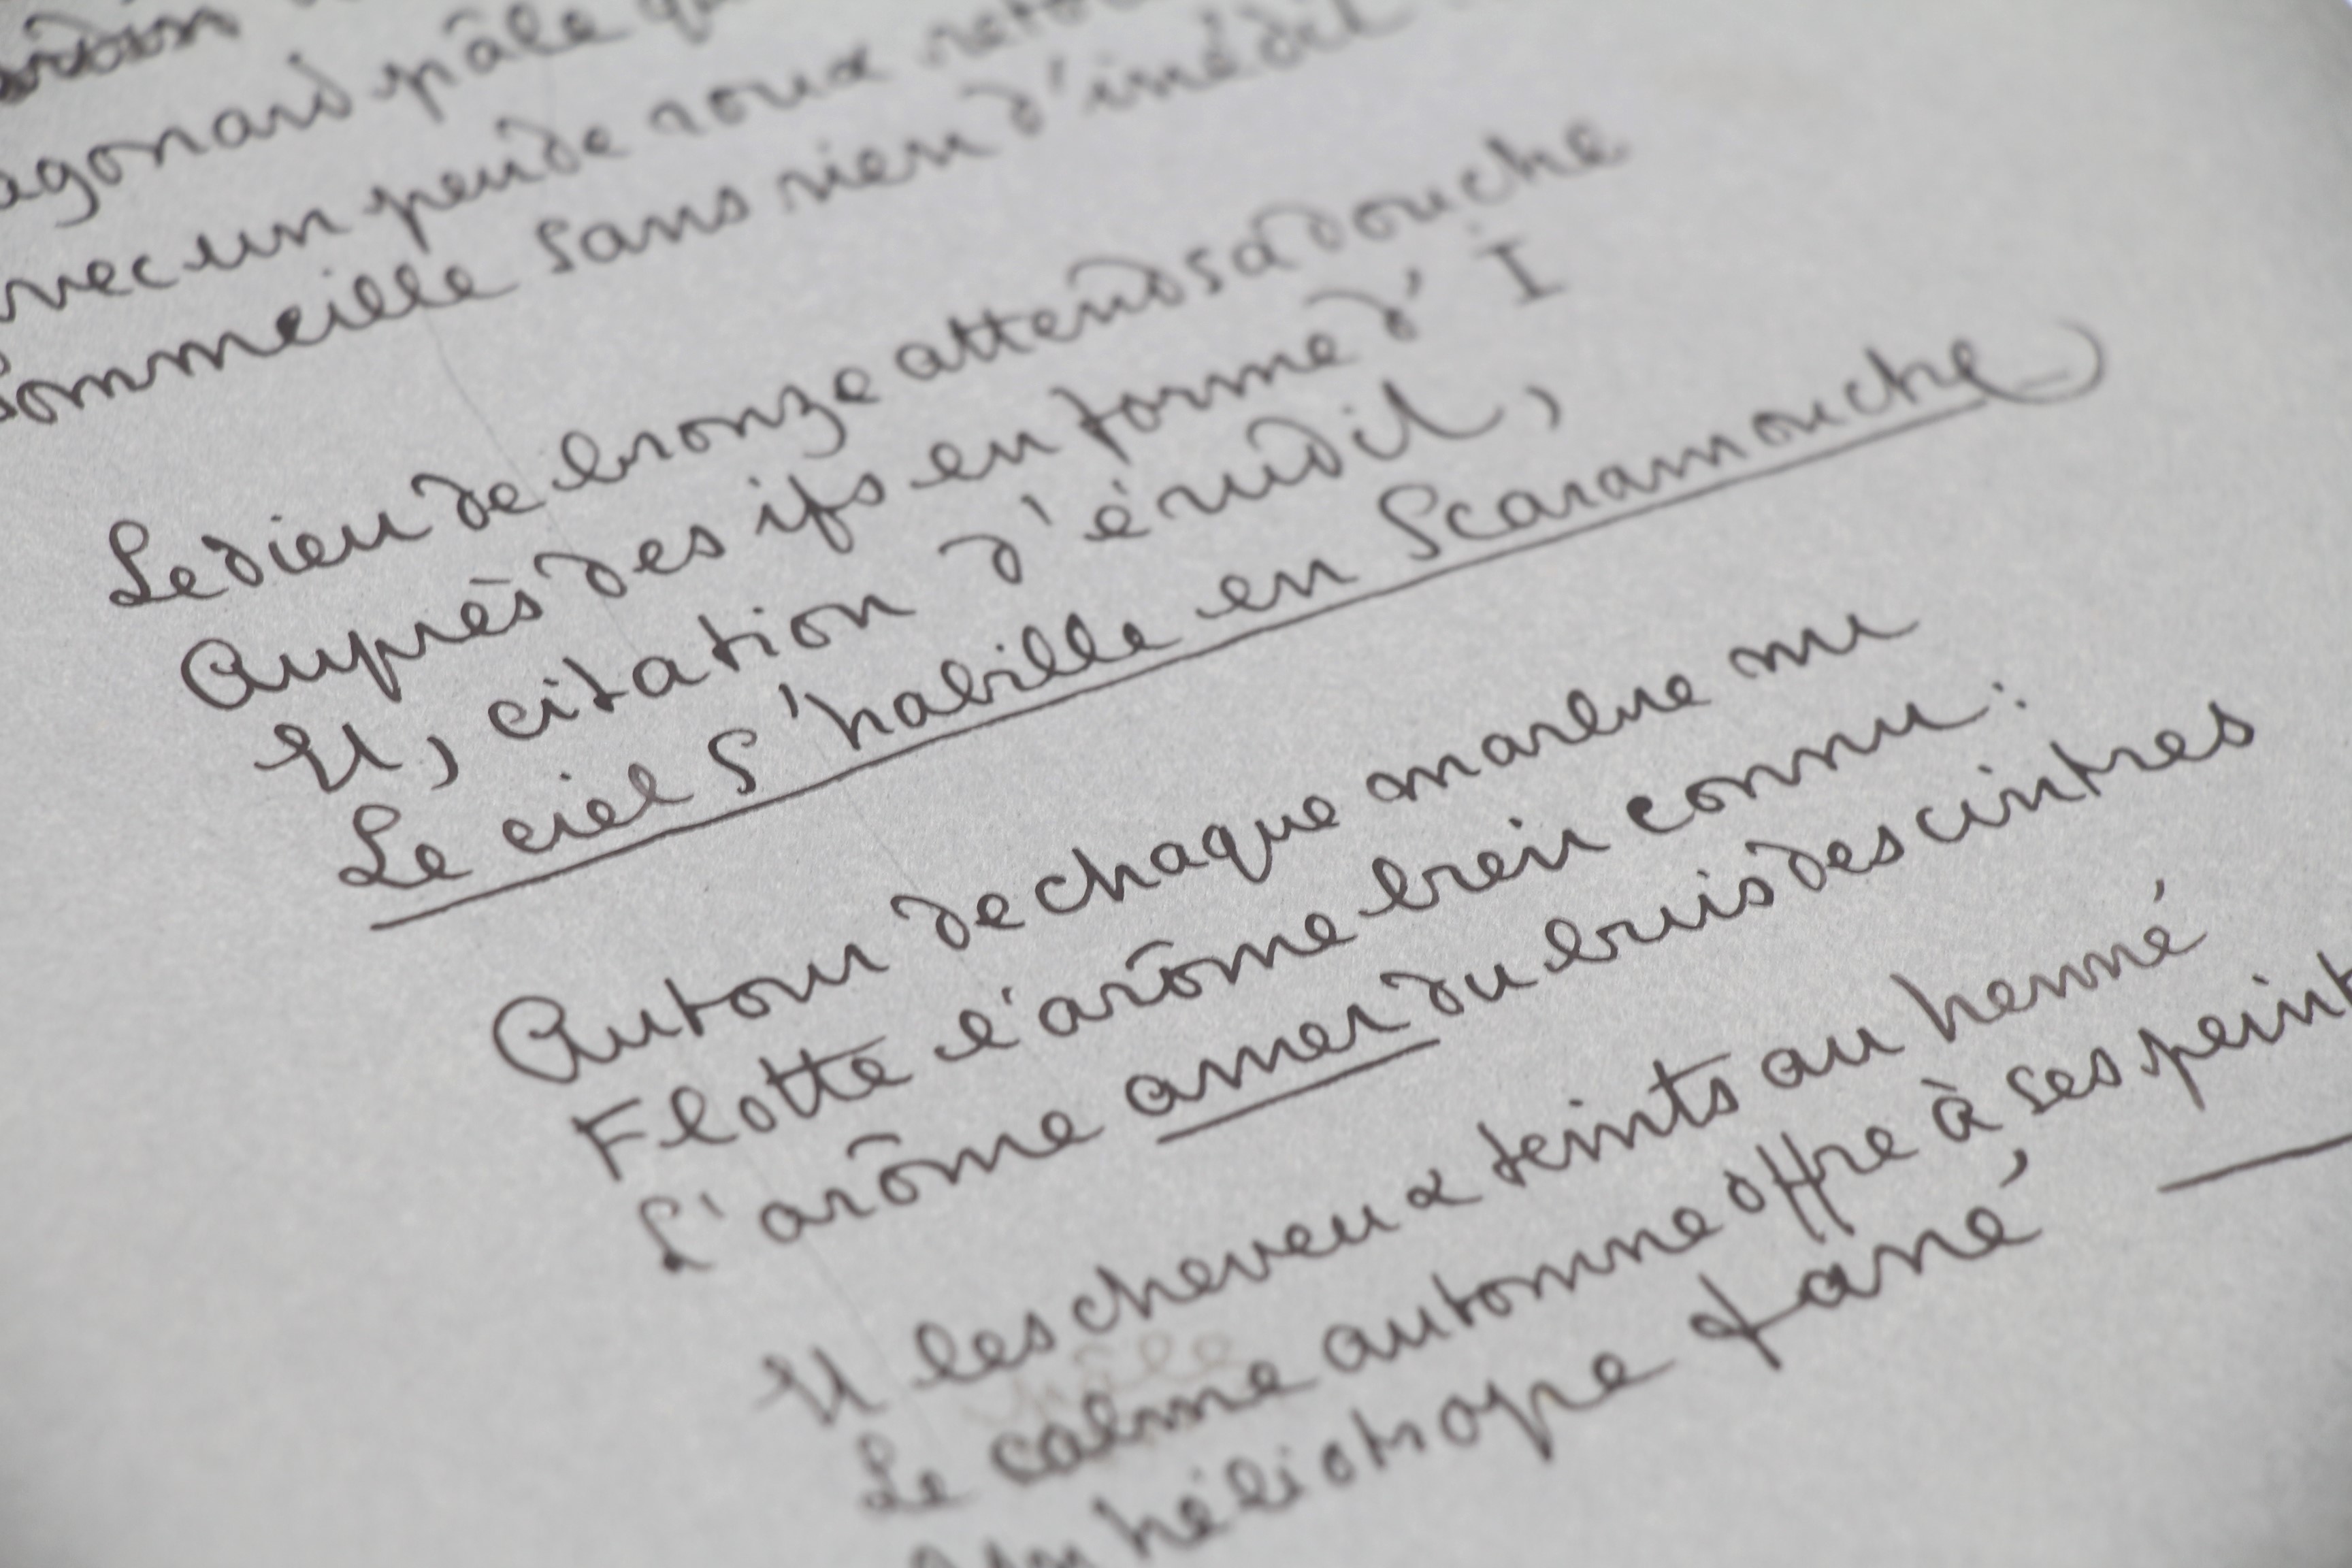 pâle
avec un peu de roux
sommeille sans rien d'inédit
Le dieu de bronze attend sa douche
Auprès des ifs en forme d' I
Et, citation d'érudit,
Le ciel s'habille en Scaramouche
Autour de chaque marbre nu
Flotte l'arôme bien connu :
L'arôme amer du buis des cintres
Et les cheveux teints au henné
Le calme automne offre à ses peint
héliotrope fané